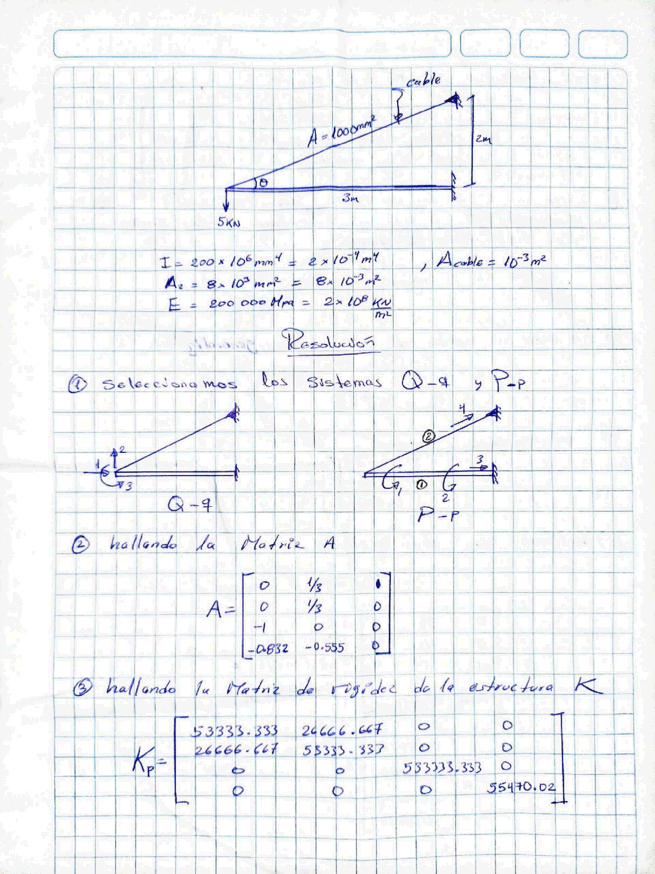 cable
A = 1000mm²
2m
θ
3m
5KN
I = 200 x 10⁶ mm⁴ = 2 x 10⁻⁴ m⁴ , A cable = 10⁻³ m²
A₂ = 8 x 10³ mm² = 8 x 10⁻³ m²
E = 200 000 Mpa = 2 x 10⁸ KN/m²
Resolución
① Seleccionamos los sistemas Q-q y P-p
4
②
1 2
3
3
1 ① 2
Q-q
P-p
② hallando la Matriz A
A =
0 1/3 1
0 1/3 0
-1 0 0
-0.832 -0.555 0
③ hallando la Matriz de rigidez de la estructura K
Kp =
53333.333 26666.667 0 0
26666.667 53333.333 0 0
0 0 533333.333 0
0 0 0 55470.02